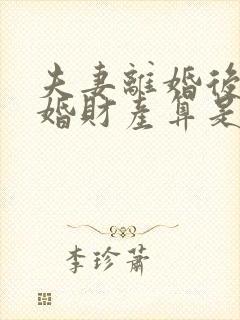 夫妻離婚後
婚財產算是
李珍蕭